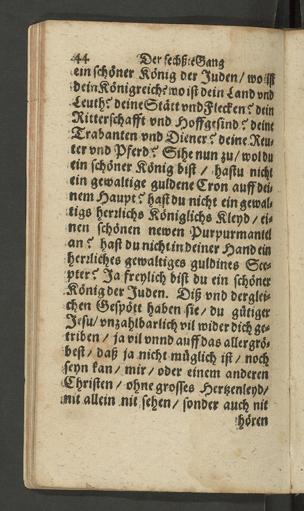 44 Der sechßte Gang
ein schöner König der Juden / wo ist
dein Königreich? wo ist dein Land vnd
Leuth? deine Stätt vnd Flecken? dein
Ritterschafft vnd Hoffgesind? deine
Trabanten vnd Diener? deine Reu-
ter vnd Pferd? Sihe nun zu / wol du
ein schöner König bist / hastu nicht
ein gewaltige guldene Cron auff dei-
nem Haupt? hast du nicht ein gewal-
tigs herrlichs Königlichs Kleyd / ei-
nen schönen newen Purpurmantel
an? hast du nicht in deiner Hand ein
herrliches gewaltiges guldines Sce-
pter? Ja freylich bist du ein schöner
König der Juden. Diß vnd derglei-
chen Gespött haben sie / du gütiger
Jesu / vnzahlbarlich vil wider dich ge-
triben / ja vil vnnd auff das allergrö-
best / daß ja nicht müglich ist / noch
seyn kan / mir / oder einem anderen
Christen / ohne grosses Hertzenleyd /
nit allein nit sehen / sonder auch nit
hören